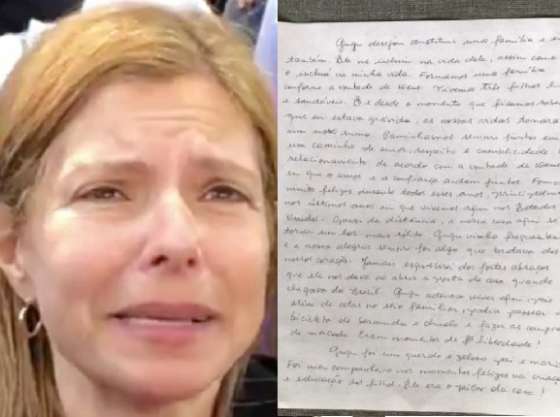 Gugu desejou constituir uma família e eu
também. Ele me incluiu na vida dele, assim como
o incluí na minha vida. Formamos uma família
conforme a vontade de Deus. Tivemos três filhos
e saudáveis. E desde o momento que ficamos
que eu estava grávida, as nossas vidas
um novo rumo. Caminhamos sempre juntos em
um caminho de amor, respeito e
relacionamento de acordo com a vontade de
em que o amor e a confiança andam juntos. Fomos
muito felizes durante todos esses anos,
nos últimos anos em que viemos aqui nos Estados
Unidos. Apesar da distância, a nossa casa aqui
um lar mais sólido. Gugu vinha
e a nossa alegria sempre foi algo que
nosso coração. Jamais esquecerei dos fortes abraços
que ele nos dava ao abrir a porta de casa quando
chegava do Brasil. Gugu adorava viver aqui,
além de estar no seio familiar, podia passear
bicicleta de bermuda e chinelo e fazer as compras
de mercado. Eram momentos de liberdade!
Gugu foi um querido e zeloso pai e
Foi meu companheiro nos momentos felizes na
e educação dos filhos. Ele era o pilar da casa!